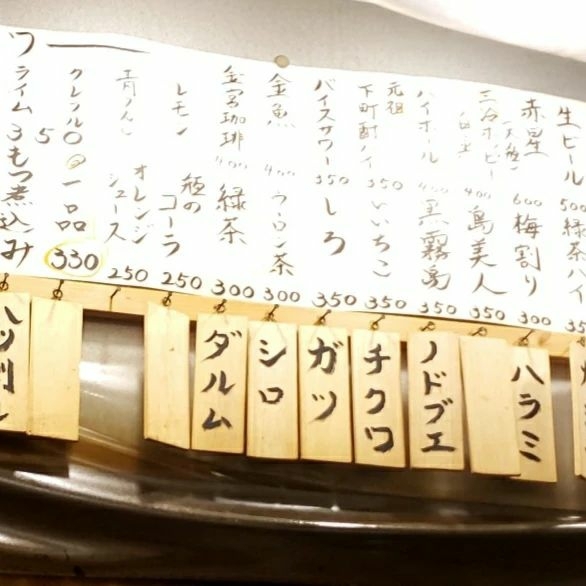 生ビール 500
緑茶ハイ
赤星 600
梅割り 300
三冷ホッピー 400
島美人 350
ハイボール 400
黒霧島 350
元祖
下町酎ハイ 350
いいちこ 350
バイスサワー 350
しろ 350
金魚 400
ウーロン茶 300
金宮珈琲 400
緑茶 300
レモン
瓶の
コーラ 250
オレンジ
ジュース 250
一品
330
ライム
もつ煮込み
ハラミ
ノドブエ
チクワ
ガツ
シロ
ダルム
ハツ刺し